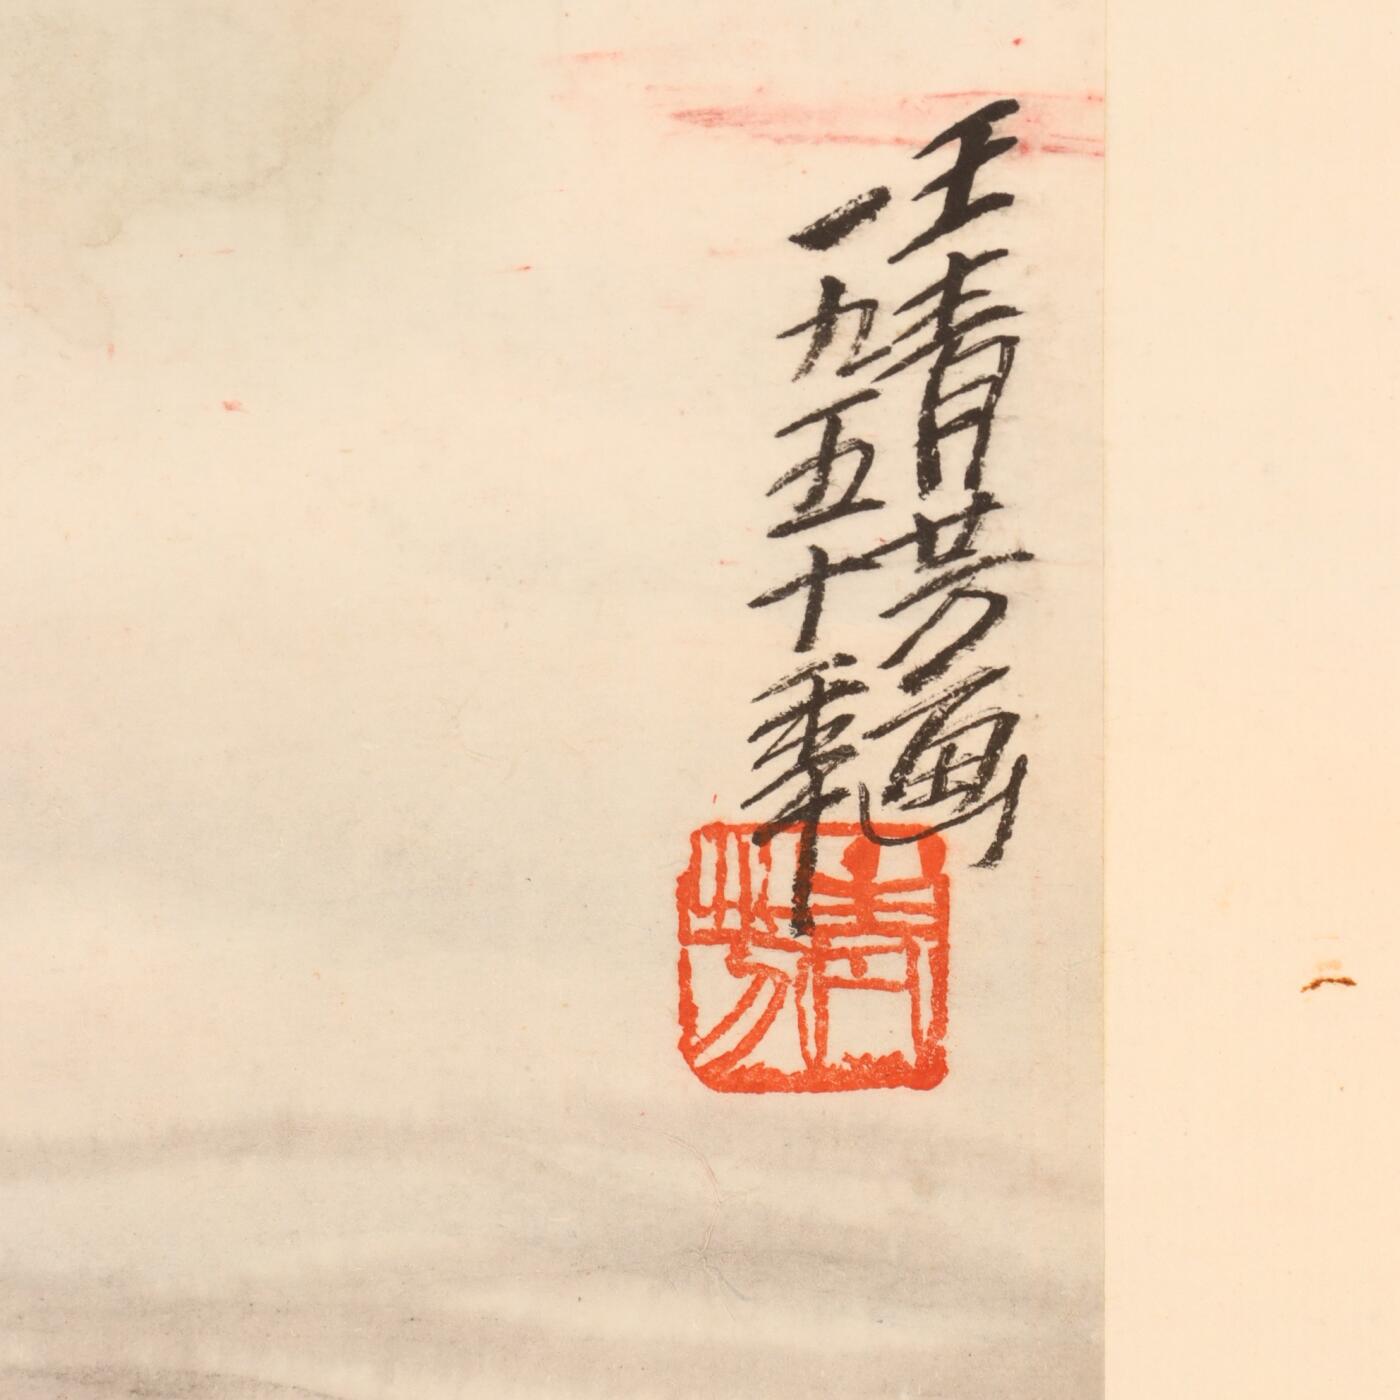 王青芳画
一九五十年
青芳